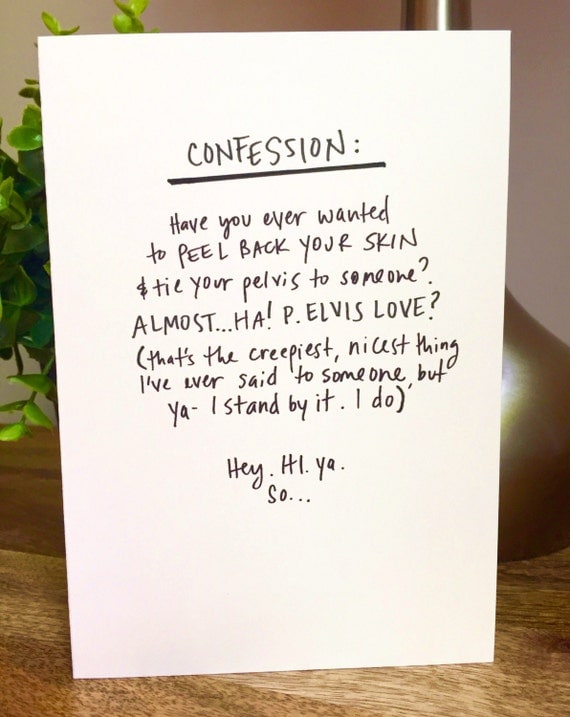 CONFESSION:
Have you ever wanted
to PEEL BACK YOUR SKIN
& tie your pelvis to someone?
ALMOST...HA! P. ELVIS LOVE?
(that's the creepiest, nicest thing
I've ever said to someone, but
ya- I stand by it. I do)
Hey. HI. ya.
So...